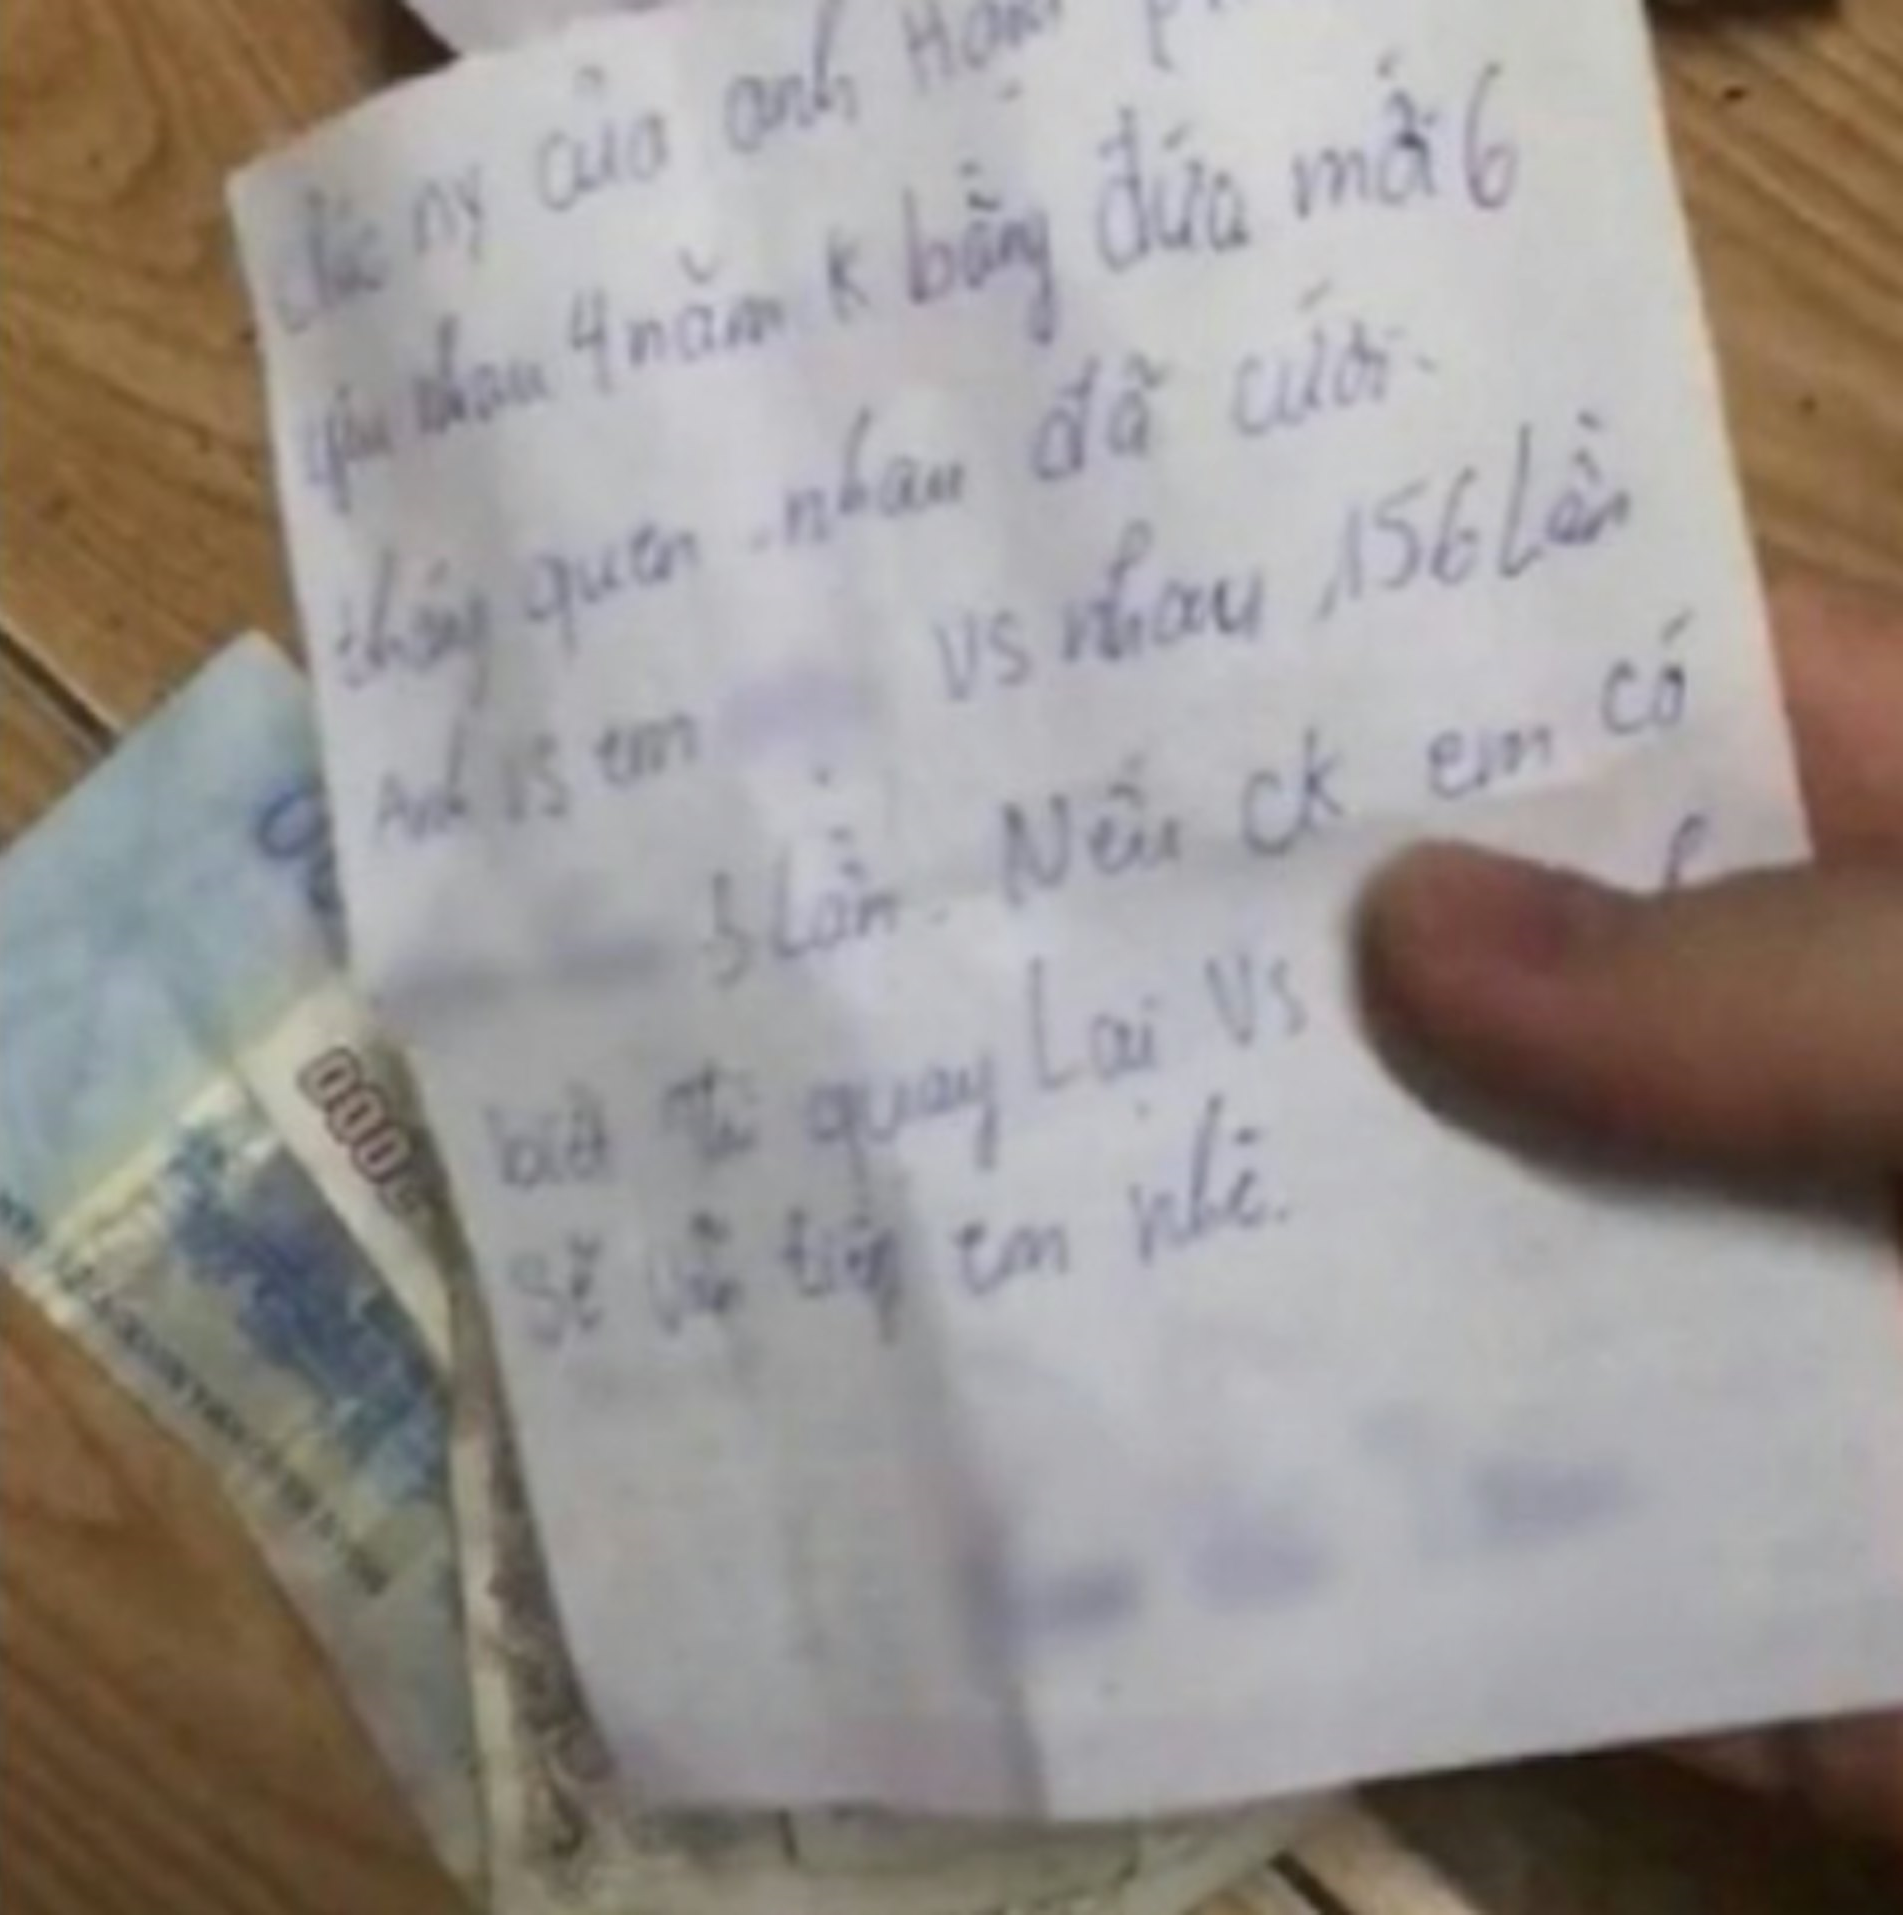 ny của anh
yêu nhau 4 năm K bằng đứa mới 6
tháng quen nhau đã cưới.
Anh VS em VS nhau 156 Lần
Lần. Nếu CK em có
biết thì quay Lại VS
sẽ vẫn em nhé.
000